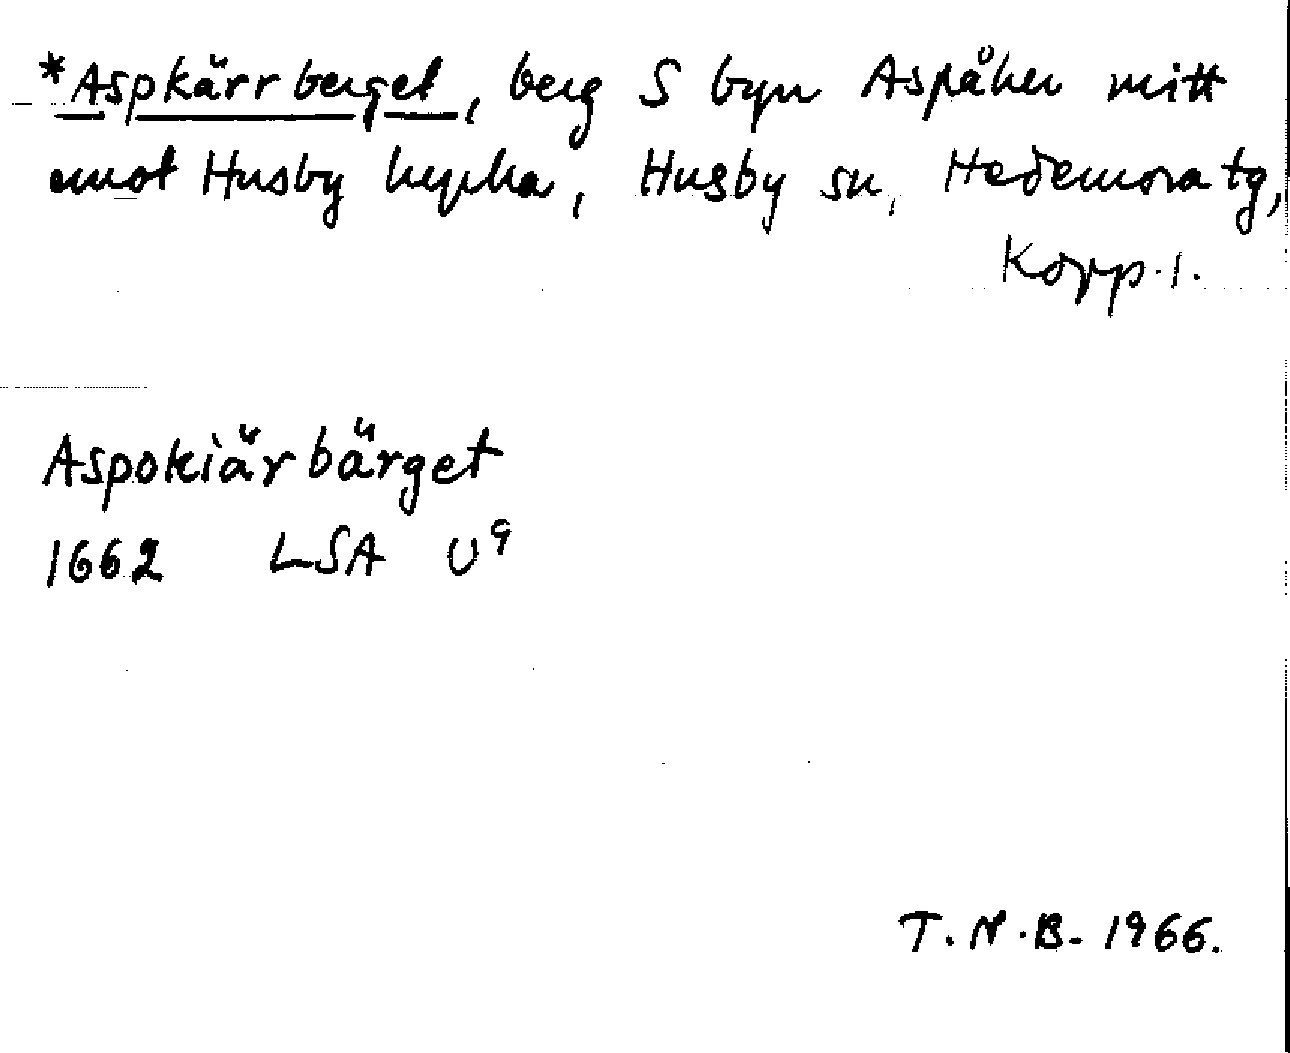 *Aspkärrberget, berg S byn Aspåker mitt
emot Husby kyrka, Husby sn, Hedemora tg,
Kopp. l.
Aspokiärbärget
1662 LSA U9
T.N.B. 1966.